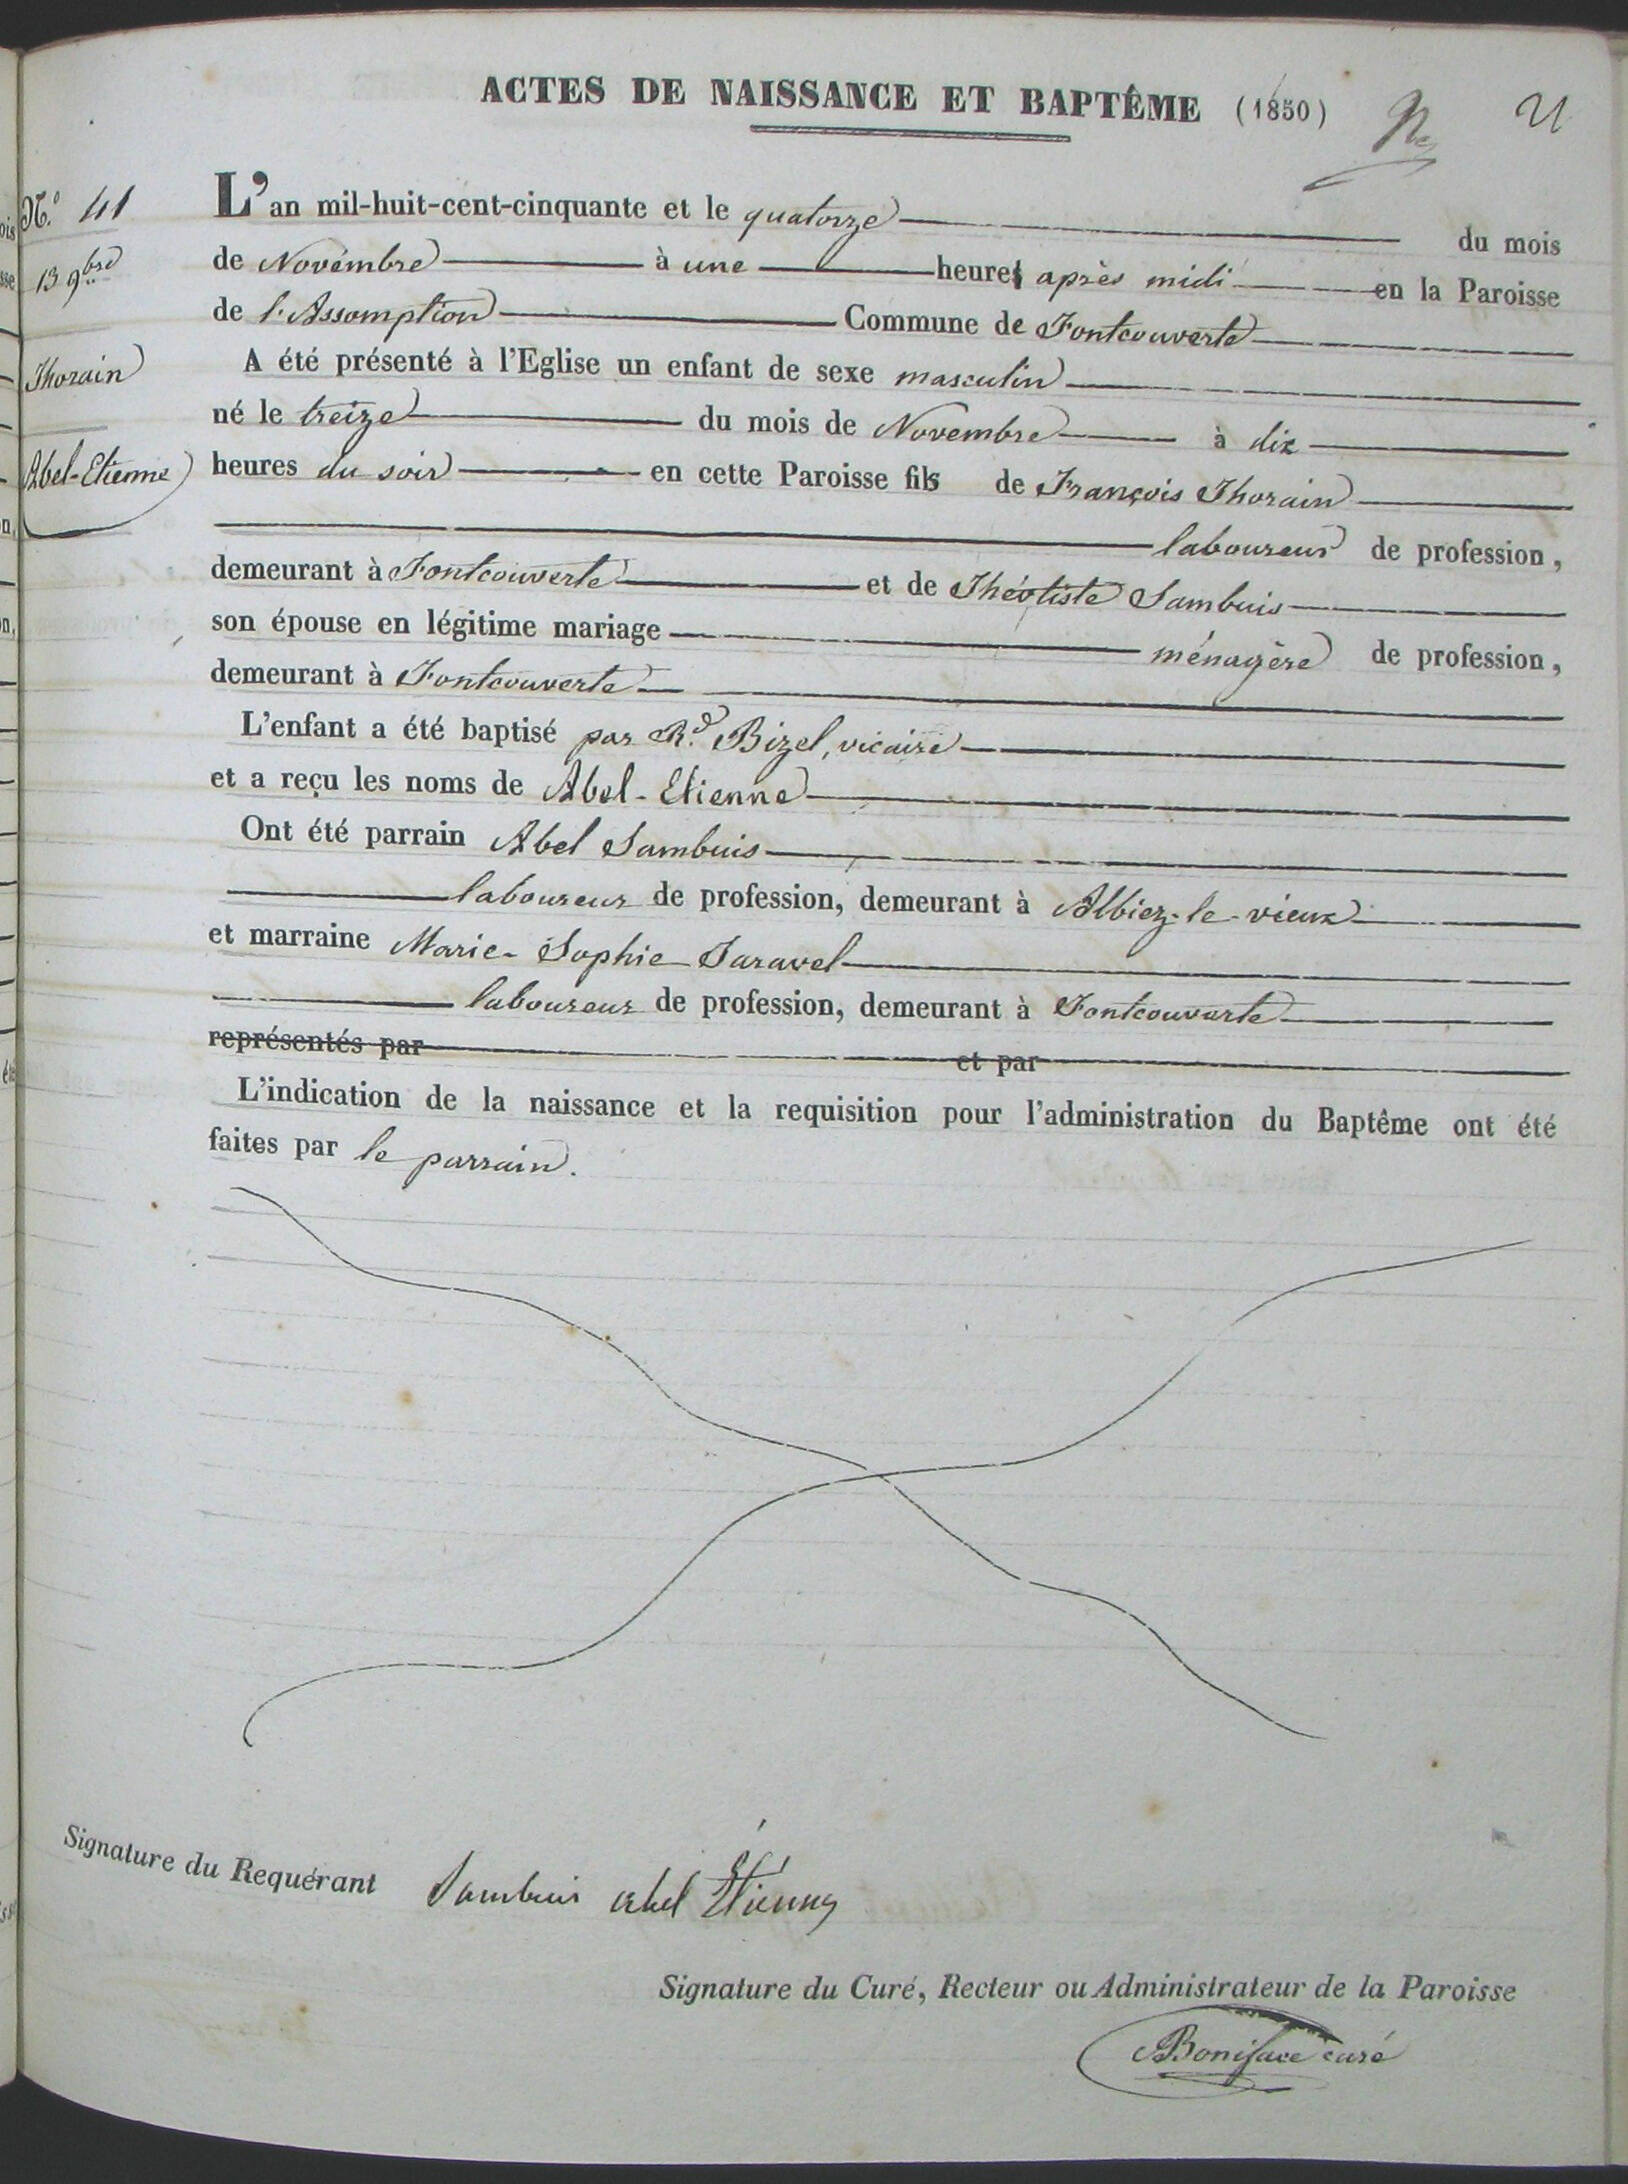 ACTES DE NAISSANCE ET BAPTÊME (1850)
21
N.º 41
13 9bre
Thorain
Abel-Etienne
L'an mil-huit-cent-cinquante et le quatorze du mois
de Novembre à une heure après midi en la Paroisse
de l'Assomption Commune de Fontcouverte
A été présenté à l'Eglise un enfant de sexe masculin
né le treize du mois de Novembre à dix
heures du soir en cette Paroisse fils de François Thorain
laboureur de profession,
demeurant à Fontcouverte et de Théotiste Sambuis
son épouse en légitime mariage ménagère de profession,
demeurant à Fontcouverte
L'enfant a été baptisé par Rd Bizel, vicaire
et a reçu les noms de Abel-Etienne
Ont été parrain Abel Sambuis
laboureur de profession, demeurant à Albiez-le-vieux
et marraine Marie-Sophie Taravel
laboureur de profession, demeurant à Fontcouverte
représentés par et par
L'indication de la naissance et la requisition pour l'administration du Baptême ont été
faites par le parrain.
Signature du Requérant Sambuis abel Étienne
Signature du Curé, Recteur ou Administrateur de la Paroisse
Boniface curé